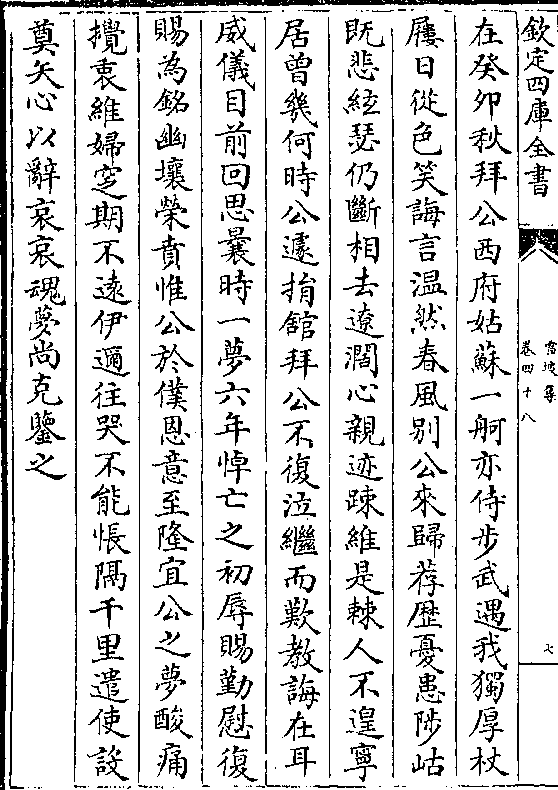 欽定四庫全書
雪坡集
卷四十八
七
在癸卯秋拜公西府姑蘇一舸亦侍步武遇我獨厚杖
屨日從色笑誨言温然春風别公來歸荐歴憂患陟岵
既悲絃瑟仍斷相去遼濶心親迹踈維是棘人不遑寧
居曾幾何時公遽捐館拜公不復泣繼而歎教誨在耳
威儀目前回思曩時一夢六年悼亡之初辱賜勤慰復
賜為銘幽壤榮賁惟公於僕恩意至隆宜公之夢酸痛
攪衷維婦窆期不遠伊邇往哭不能悵隔千里遣使設
奠矢心以辭哀哀魂夢尚克鑒之